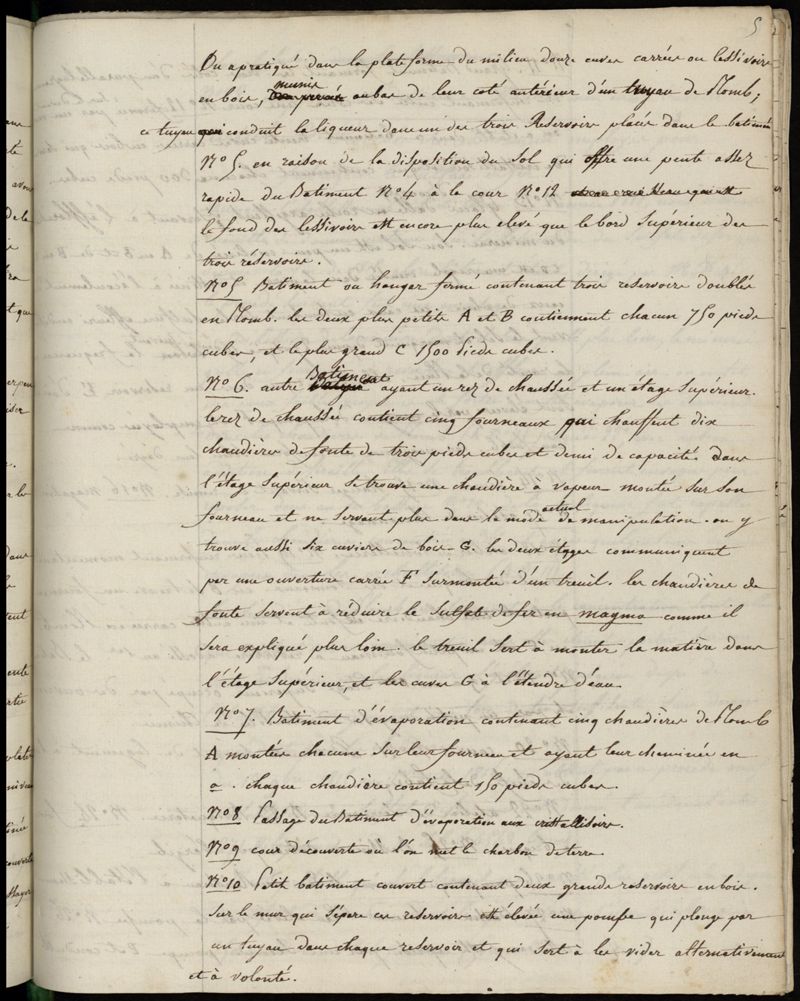 5
On a pratiqué dans la plateforme du milieu douze cuves carrées ou lessivoirs
en bois, munis au bas de leur coté antérieur d'un tuyau de Plomb;
ce tuyau conduit la liqueur dans un des trois Reservoirs placés dans le batiment
N° 5. en raison de la disposition du sol qui offre une pente assez
rapide du Batiment N° 4 à la cour N° 12
le fond des lessivoirs est encore plus elevé que le bord supérieur des
trois réservoirs.
N° 5 Batiment ou hangar fermé contenant trois reservoirs doublés
en Plomb. les deux plus petits A et B contiennent chacun 750 pieds
cubes, et le plus grand C 1500 Pieds cubes.
N° 6. autre Batiment ayant un rez de chaussée et un étage supérieur.
le rez de chaussée contient cinq fourneaux qui chauffent dix
chaudières de fonte de trois pieds cubes et demi de capacité. Dans
l'étage supérieur se trouve une chaudière à vapeur montée sur son
fourneau et ne servant plus dans le mode actuel de manipulation. on y
trouve aussi six cuviers de bois G. les deux étages communiquent
par une ouverture carrée F surmontée d'un treuil. les chaudières de
fonte servent à réduire le sulfate de fer en magma comme il
sera expliqué plus loin. le treuil sert à monter la matière dans
l'étage supérieur, et les cuves G à l'étendre d'eau.
N° 7. Batiment d'évaporation contenant cinq chaudières de Plomb
A montées chacune sur leur fourneau et ayant leur cheminée en
a. chaque chaudière contient 150 pieds cubes.
N° 8 Passage du Batiment d'évaporation aux cristallisoirs.
N° 9 cour découverte où l'on met le charbon de terre.
N° 10 Petit batiment couvert contenant deux grands reservoirs en bois.
sur le mur qui sépare ces reservoirs est élevée une pompe qui plonge par
un tuyau dans chaque reservoir et qui sert à les vider alternativement
et à volonté.